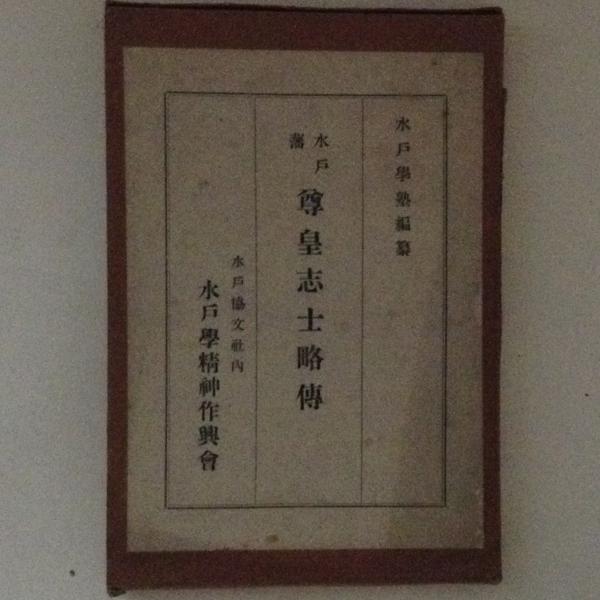 水戶學塾編纂
水戶藩尊皇志士略傳
水戶協文社內
水戶學精神作興會